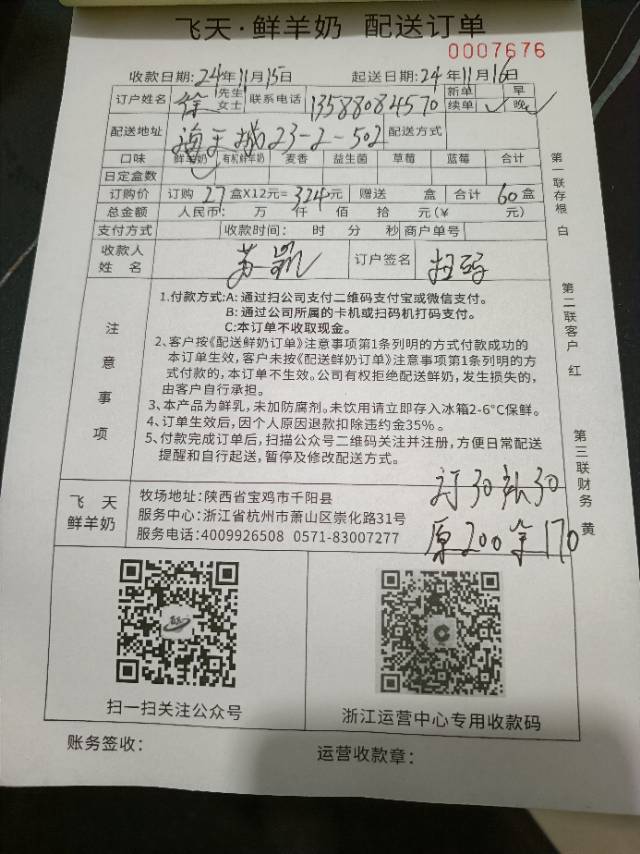 飞天·鲜羊奶 配送订单
0007676
收款日期：24年11月15日 起送日期：24年11月16日
订户姓名 徐 先生 女士 联系电话 13588084570 新单 续单 ✓ 早 晚 ✓
配送地址 海天城23-2-502 配送方式
口味 鲜羊奶 有机鲜羊奶 麦香 益生菌 草莓 蓝莓 合计
日定盒数
订购价 订购 27 盒X12元= 324元 赠送 盒 合计 60盒
总金额 人民币： 万 仟 佰 拾 元（¥ 元）
支付方式 收款时间： 时 分 秒 商户单号
收款人姓名 苏凯 订户签名 扫码
注意事项
1.付款方式:A: 通过扫公司支付二维码支付宝或微信支付。
B: 通过公司所属的卡机或扫码机打码支付。
C:本订单不收取现金。
2、客户按《配送鲜奶订单》注意事项第1条列明的方式付款成功的
本订单生效，客户未按《配送鲜奶订单》注意事项第1条列明的方
式付款的，本订单不生效。公司有权拒绝配送鲜奶，发生损失的，
由客户自行承担。
3、本产品为鲜乳，未加防腐剂。未饮用请立即存入冰箱2-6°C保鲜。
4、订单生效后，因个人原因退款扣除违约金35%。
5、付款完成订单后，扫描公众号二维码关注并注册，方便日常配送
提醒和自行起送，暂停及修改配送方式。
订30补30
原200余170
飞天
鲜羊奶
牧场地址：陕西省宝鸡市千阳县
服务中心：浙江省杭州市萧山区崇化路31号
服务电话：4009926508 0571-83007277
扫一扫关注公众号
浙江运营中心专用收款码
账务签收：
运营收款章：
第一联存根 白
第二联客户 红
第三联财务 黄